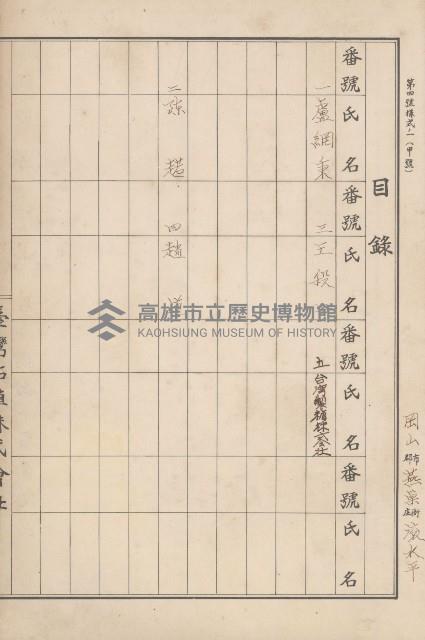 第四號樣式ノ一(甲號)
岡山市郡燕巢街庄滾水平
目錄
番號氏名番號氏名番號氏名番號氏名
一盧網秉 三王段 五台灣製糖株式會社
二陳趕 四趙
臺灣拓殖株式會社
高雄市立歷史博物館
KAOHSIUNG MUSEUM OF HISTORY